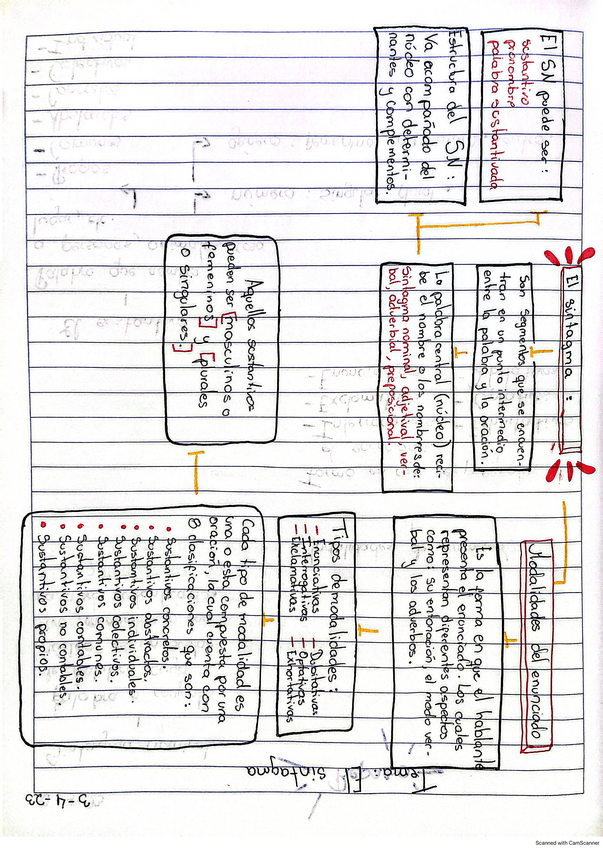 3-4-23
Tema: El sintagma
El sintagma :
Son segmentos que se encuen-
tran en un punto intermedio
entre la palabra y la oración.
La palabra central (núcleo) reci-
be el nombre o los nombres de:
Sintagma nominal, adjetival, ver-
bal, adverbial, preposicional.
El SN puede ser:
sustantivo
pronombre
palabra sustantivada
Estructura del SN:
Va acompañado del
núcleo con determi-
nantes y complementos.
Modalidades del enunciado
Es la forma en que el hablante
presenta el enunciado. Los cuales
representan diferentes aspectos
como: su entonación, el modo ver-
bal y los adverbos.
Tipos de modalidades:
– Enunciativas
– Interrogativas
– Exclamativas
– Dubitativas
– Optativas
– Exhortativas
Cada tipo de modalidad es
una o esta compuesta por una
oración, la cual cuenta con
8 clasificaciones que son:
• Sustantivos concretos.
• Sustantivos abstractos.
• Sustantivos individuales.
• Sustantivos colectivos.
• Sustantivos comunes.
• Sustantivos contables.
• Sustantivos no contables.
• Sustantivos propios.
Aquellos sustantivos
pueden ser [masculinos o
femeninos] y [plurales
o singulares.]
Scanned with CamScanner